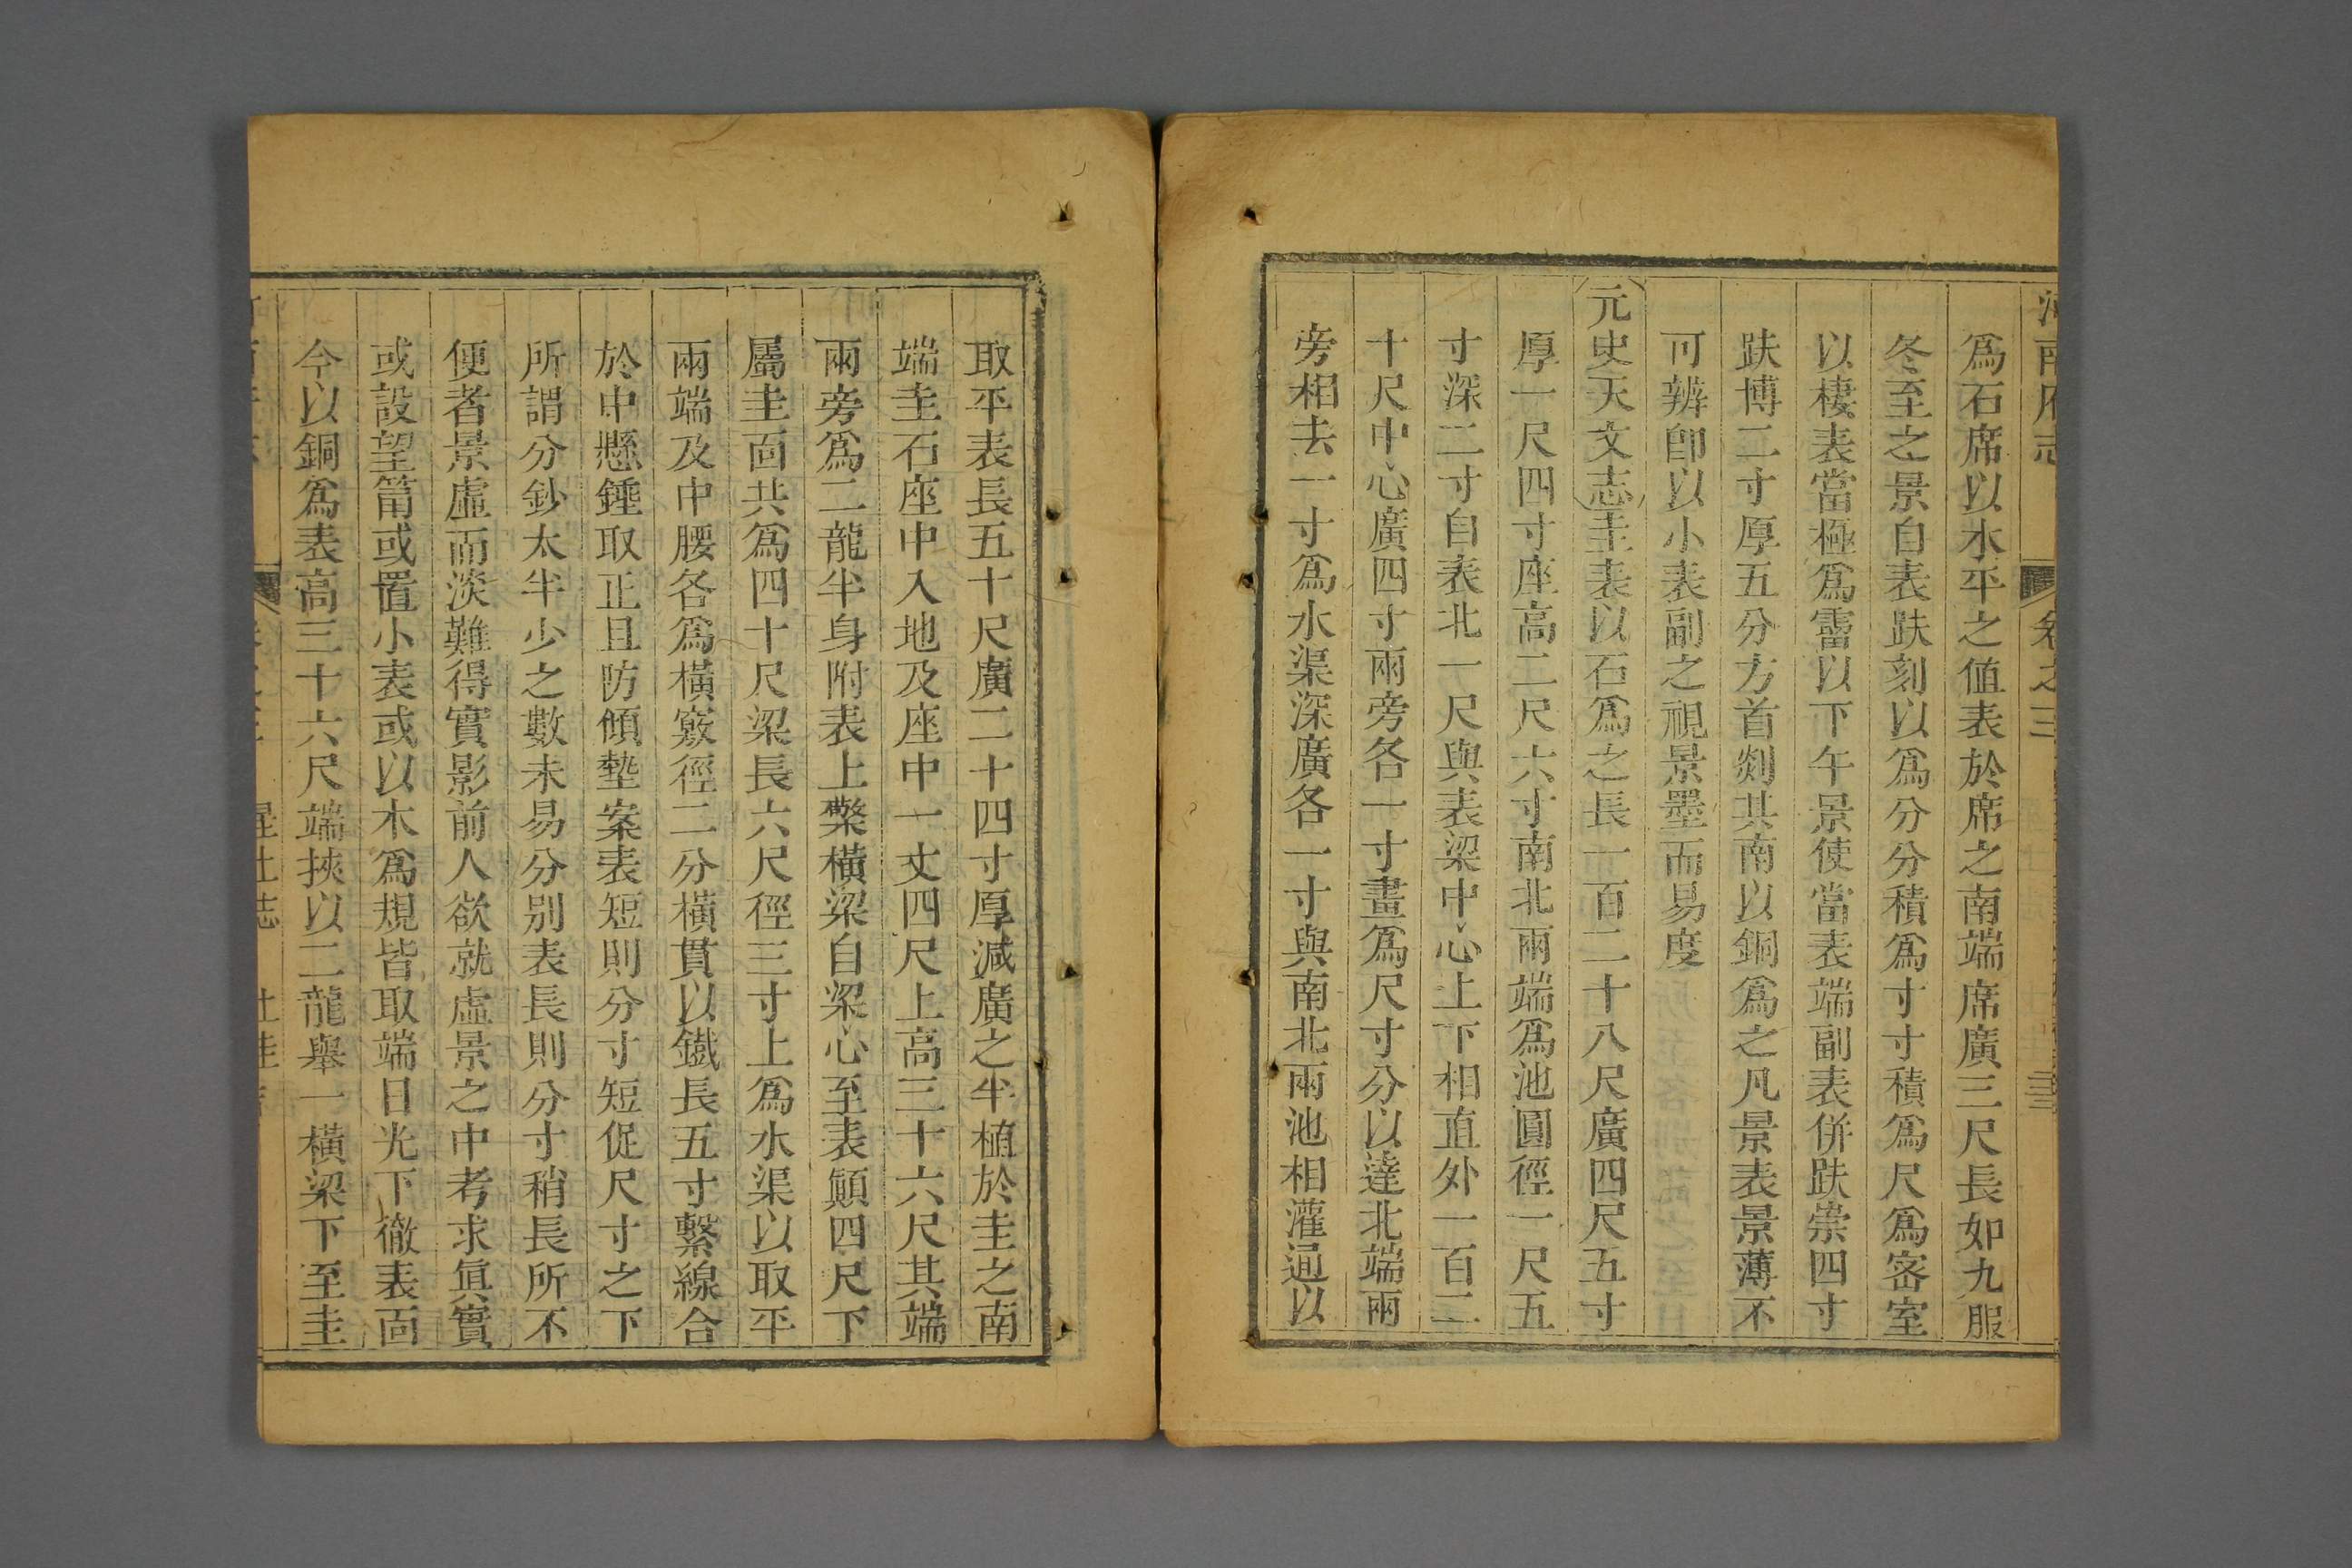 河南府志 卷之三
爲石席以水平之値表於席之南端席廣三尺長如九服
冬至之景自表趺刻以爲分分積爲寸寸積爲尺爲密室
以棲表當極爲霤以下午景使當表端副表併趺崇四寸
趺博二寸厚五分方首剡其南以銅爲之凡景表景薄不
可辨卽以小表副之視景墨而易度
元史天文志圭表以石爲之長一百二十八尺廣四尺五寸
厚一尺四寸座高二尺六寸南北兩端爲池圓徑一尺五
寸深二寸自表北一尺與表梁中心上下相直外一百二
十尺中心廣四寸兩旁各一寸畫爲尺寸分以達北端兩
旁相去一寸爲水渠深廣各一寸與南北兩池相灌通以
取平表長五十尺廣二十四寸厚減廣之半植於圭之南
端圭石座中入地及座中一丈四尺上高三十六尺其端
兩旁爲二龍半身附表上擎橫梁自梁心至表顚四尺下
屬圭面共爲四十尺梁長六尺徑三寸上爲水渠以取平
兩端及中腰各爲橫竅徑二分橫貫以鐵長五寸繫線合
於中懸錘取正且防傾墊案表短則分寸短促尺寸之下
所謂分鈔太半少之數未易分別表長則分寸稍長所不
便者景虛而淡難得實影前人欲就虛景之中考求眞實
或設望筩或置小表或以木爲規皆取端日光下徹表面
今以銅爲表高三十六尺端挾以二龍舉一橫梁下至圭